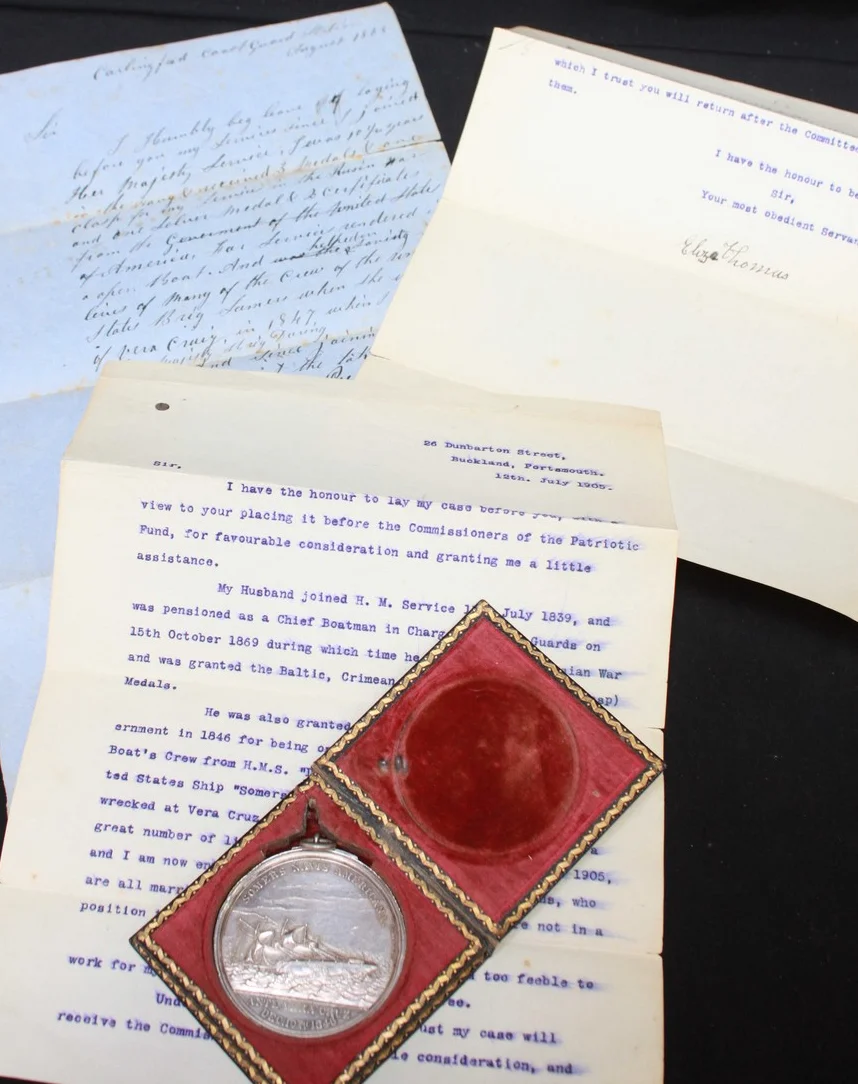 Carlingford Coast Guard Station
August 186
Sir
I Humbly beg leave of laying
before you my Services since I joined
Her Majesty Service. I was 10 ¾ years
in the navy & received 3 medals & one
clasp for my Services in the Rusin War
and one Silver Medal & 2 Certificates
from the Government of the United States
of America, for Services rendered in
a open Boat. And was helped in the Saving
lives of Many of the Crew of the
States Brig Sumers when she
of Vera Cruiz, in 1847 when
And Since joining
which I trust you will return after the Committee
them.
I have the honour to be
Sir,
Your most obedient Servan
Eliza Thomas
26 Dunbarton Street,
Buckland, Portsmouth.
12th. July 1905.
Sir.
I have the honour to lay my case before you, with a
view to your placing it before the Commissioners of the Patriotic
Fund, for favourable consideration and granting me a little
assistance.
My Husband joined H. M. Service July 1839, and
was pensioned as a Chief Boatman in Charg Guards on
15th October 1869 during which time he ian War
and was granted the Baltic, Crimean sp)
Medals.
He was also granted
ernment in 1846 for being on
Boat's Crew from H.M.S. "
ted States Ship "Somers
wrecked at Vera Cruz
great number of li a
and I am now en 1905,
are all marr s, who
position re not in a
work for m too feeble to
Und ee.
receive the Commis ust my case will
le consideration, and
SOMERS NAVIS AMERICANA
ANTE VERA CRUZ
DEC. 10TH 1846